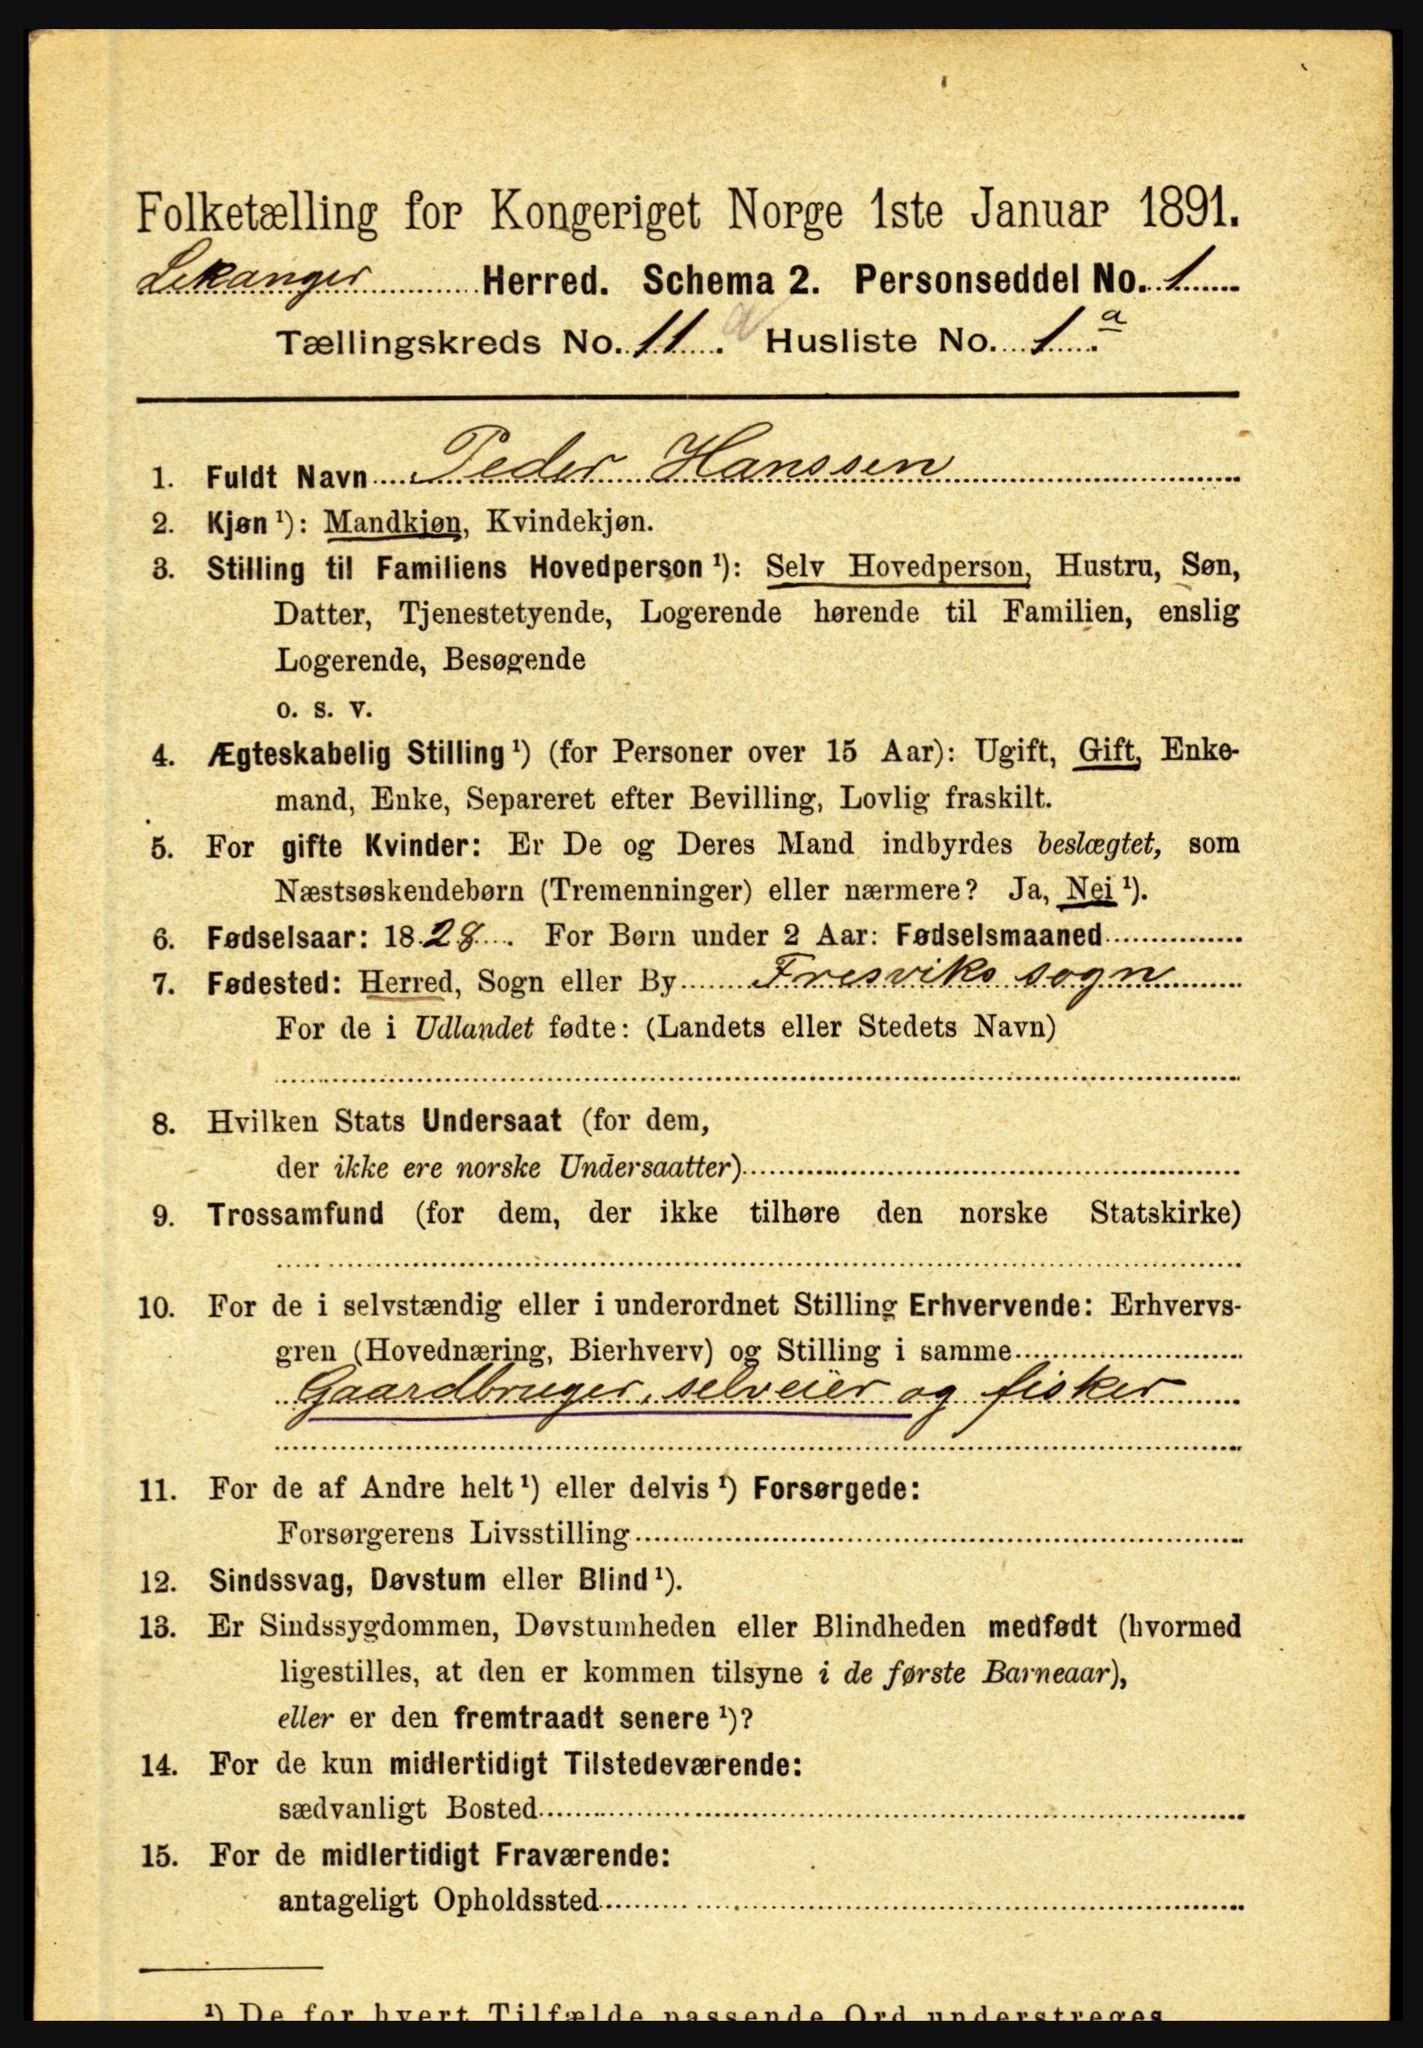 Folketælling for Kongeriget Norge 1ste Januar 1891.
Lekanger Herred. Schema 2. Personseddel No. 1
Tællingskreds No. 11. a Husliste No. 1.a
1. Fuldt Navn Peder Hanssen
2. Kjøn ¹): Mandkjøn, Kvindekjøn.
3. Stilling til Familiens Hovedperson ¹): Selv Hovedperson, Hustru, Søn,
Datter, Tjenestetyende, Logerende hørende til Familien, enslig
Logerende, Besøgende
o. s. v.
4. Ægteskabelig Stilling ¹) (for Personer over 15 Aar): Ugift, Gift, Enke-
mand, Enke, Separeret efter Bevilling, Lovlig fraskilt.
5. For gifte Kvinder: Er De og Deres Mand indbyrdes beslægtet, som
Næstsøskendebørn (Tremenninger) eller nærmere? Ja, Nei ¹).
6. Fødselsaar: 1828. For Børn under 2 Aar: Fødselsmaaned
7. Fødested: Herred, Sogn eller By Fresviks sogn
For de i Udlandet fødte: (Landets eller Stedets Navn)
8. Hvilken Stats Undersaat (for dem,
der ikke ere norske Undersaatter)
9. Trossamfund (for dem, der ikke tilhøre den norske Statskirke)
10. For de i selvstændig eller i underordnet Stilling Erhvervende: Erhvervs-
gren (Hovednæring, Bierhverv) og Stilling i samme
Gaardbruger, selveier og fisker
11. For de af Andre helt ¹) eller delvis ¹) Forsørgede:
Forsørgerens Livsstilling
12. Sindssvag, Døvstum eller Blind ¹).
13. Er Sindssygdommen, Døvstumheden eller Blindheden medfødt (hvormed
ligestilles, at den er kommen tilsyne i de første Barneaar),
eller er den fremtraadt senere ¹)?
14. For de kun midlertidigt Tilstedeværende:
sædvanligt Bosted
15. For de midlertidigt Fraværende:
antageligt Opholdssted
¹) De for hvert Tilfælde passende Ord understreges